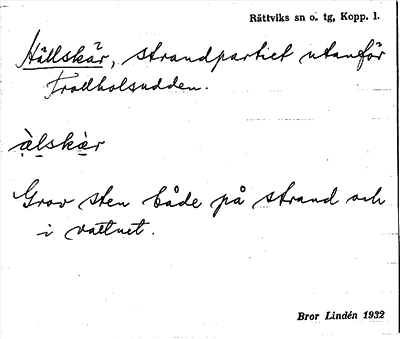 Rättviks sn o. tg, Kopp. l.
Hällskär, strandpartiet utanför
Trollholsudden.
àlskàr
Grov sten både på strand och
i vattnet.
Bror Lindén 1932